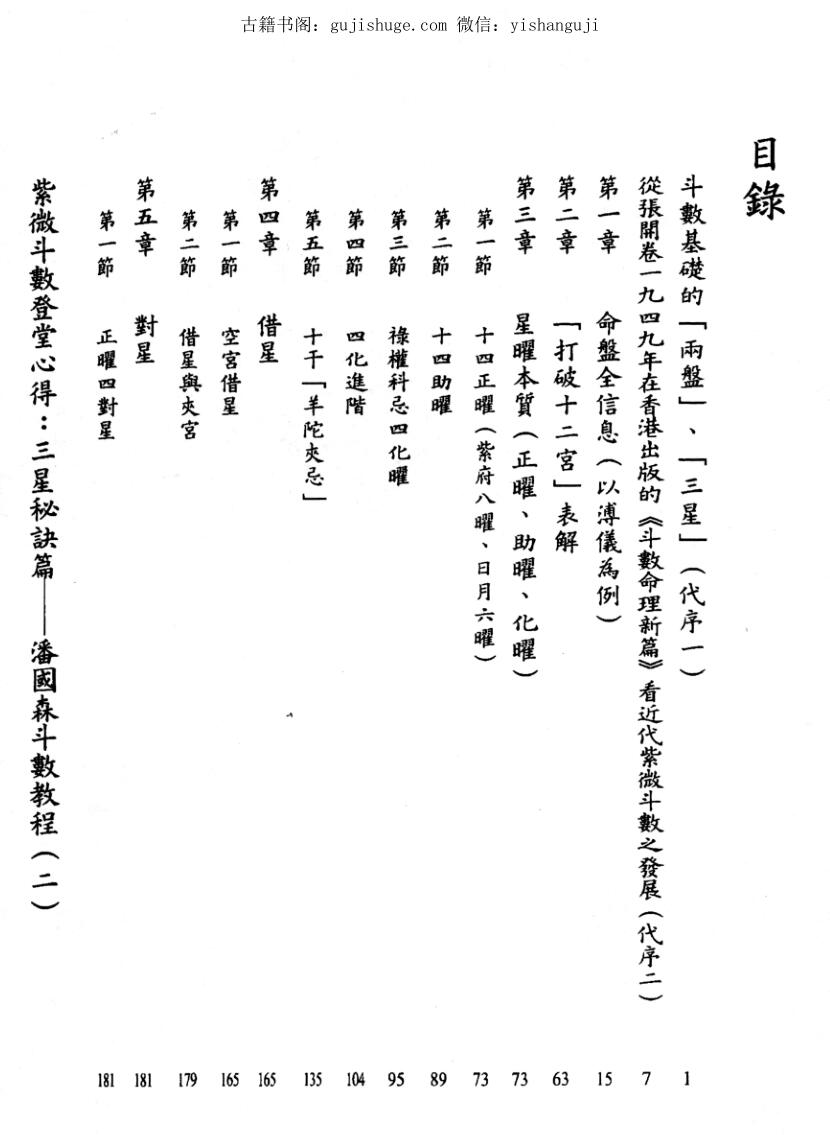 古籍书阁：gujishuge.com 微信：yishanguji
目錄
斗數基礎的「兩盤」、「三星」（代序一） 1
從張開卷一九四九年在香港出版的《斗數命理新篇》看近代紫微斗數之發展（代序二） 7
第一章 命盤全信息（以溥儀為例） 15
第二章 「打破十二宮」表解 63
第三章 星曜本質（正曜、助曜、化曜） 73
第一節 十四正曜（紫府八曜、日月六曜） 73
第二節 十四助曜 89
第三節 祿權科忌四化曜 95
第四節 四化進階 104
第五節 十干「羊陀夾忌」 135
第四章 借星 165
第一節 空宮借星 165
第二節 借星與夾宮 179
第五章 對星 181
第一節 正曜四對星 181
紫微斗數登堂心得：三星秘訣篇——潘國森斗數教程（二）